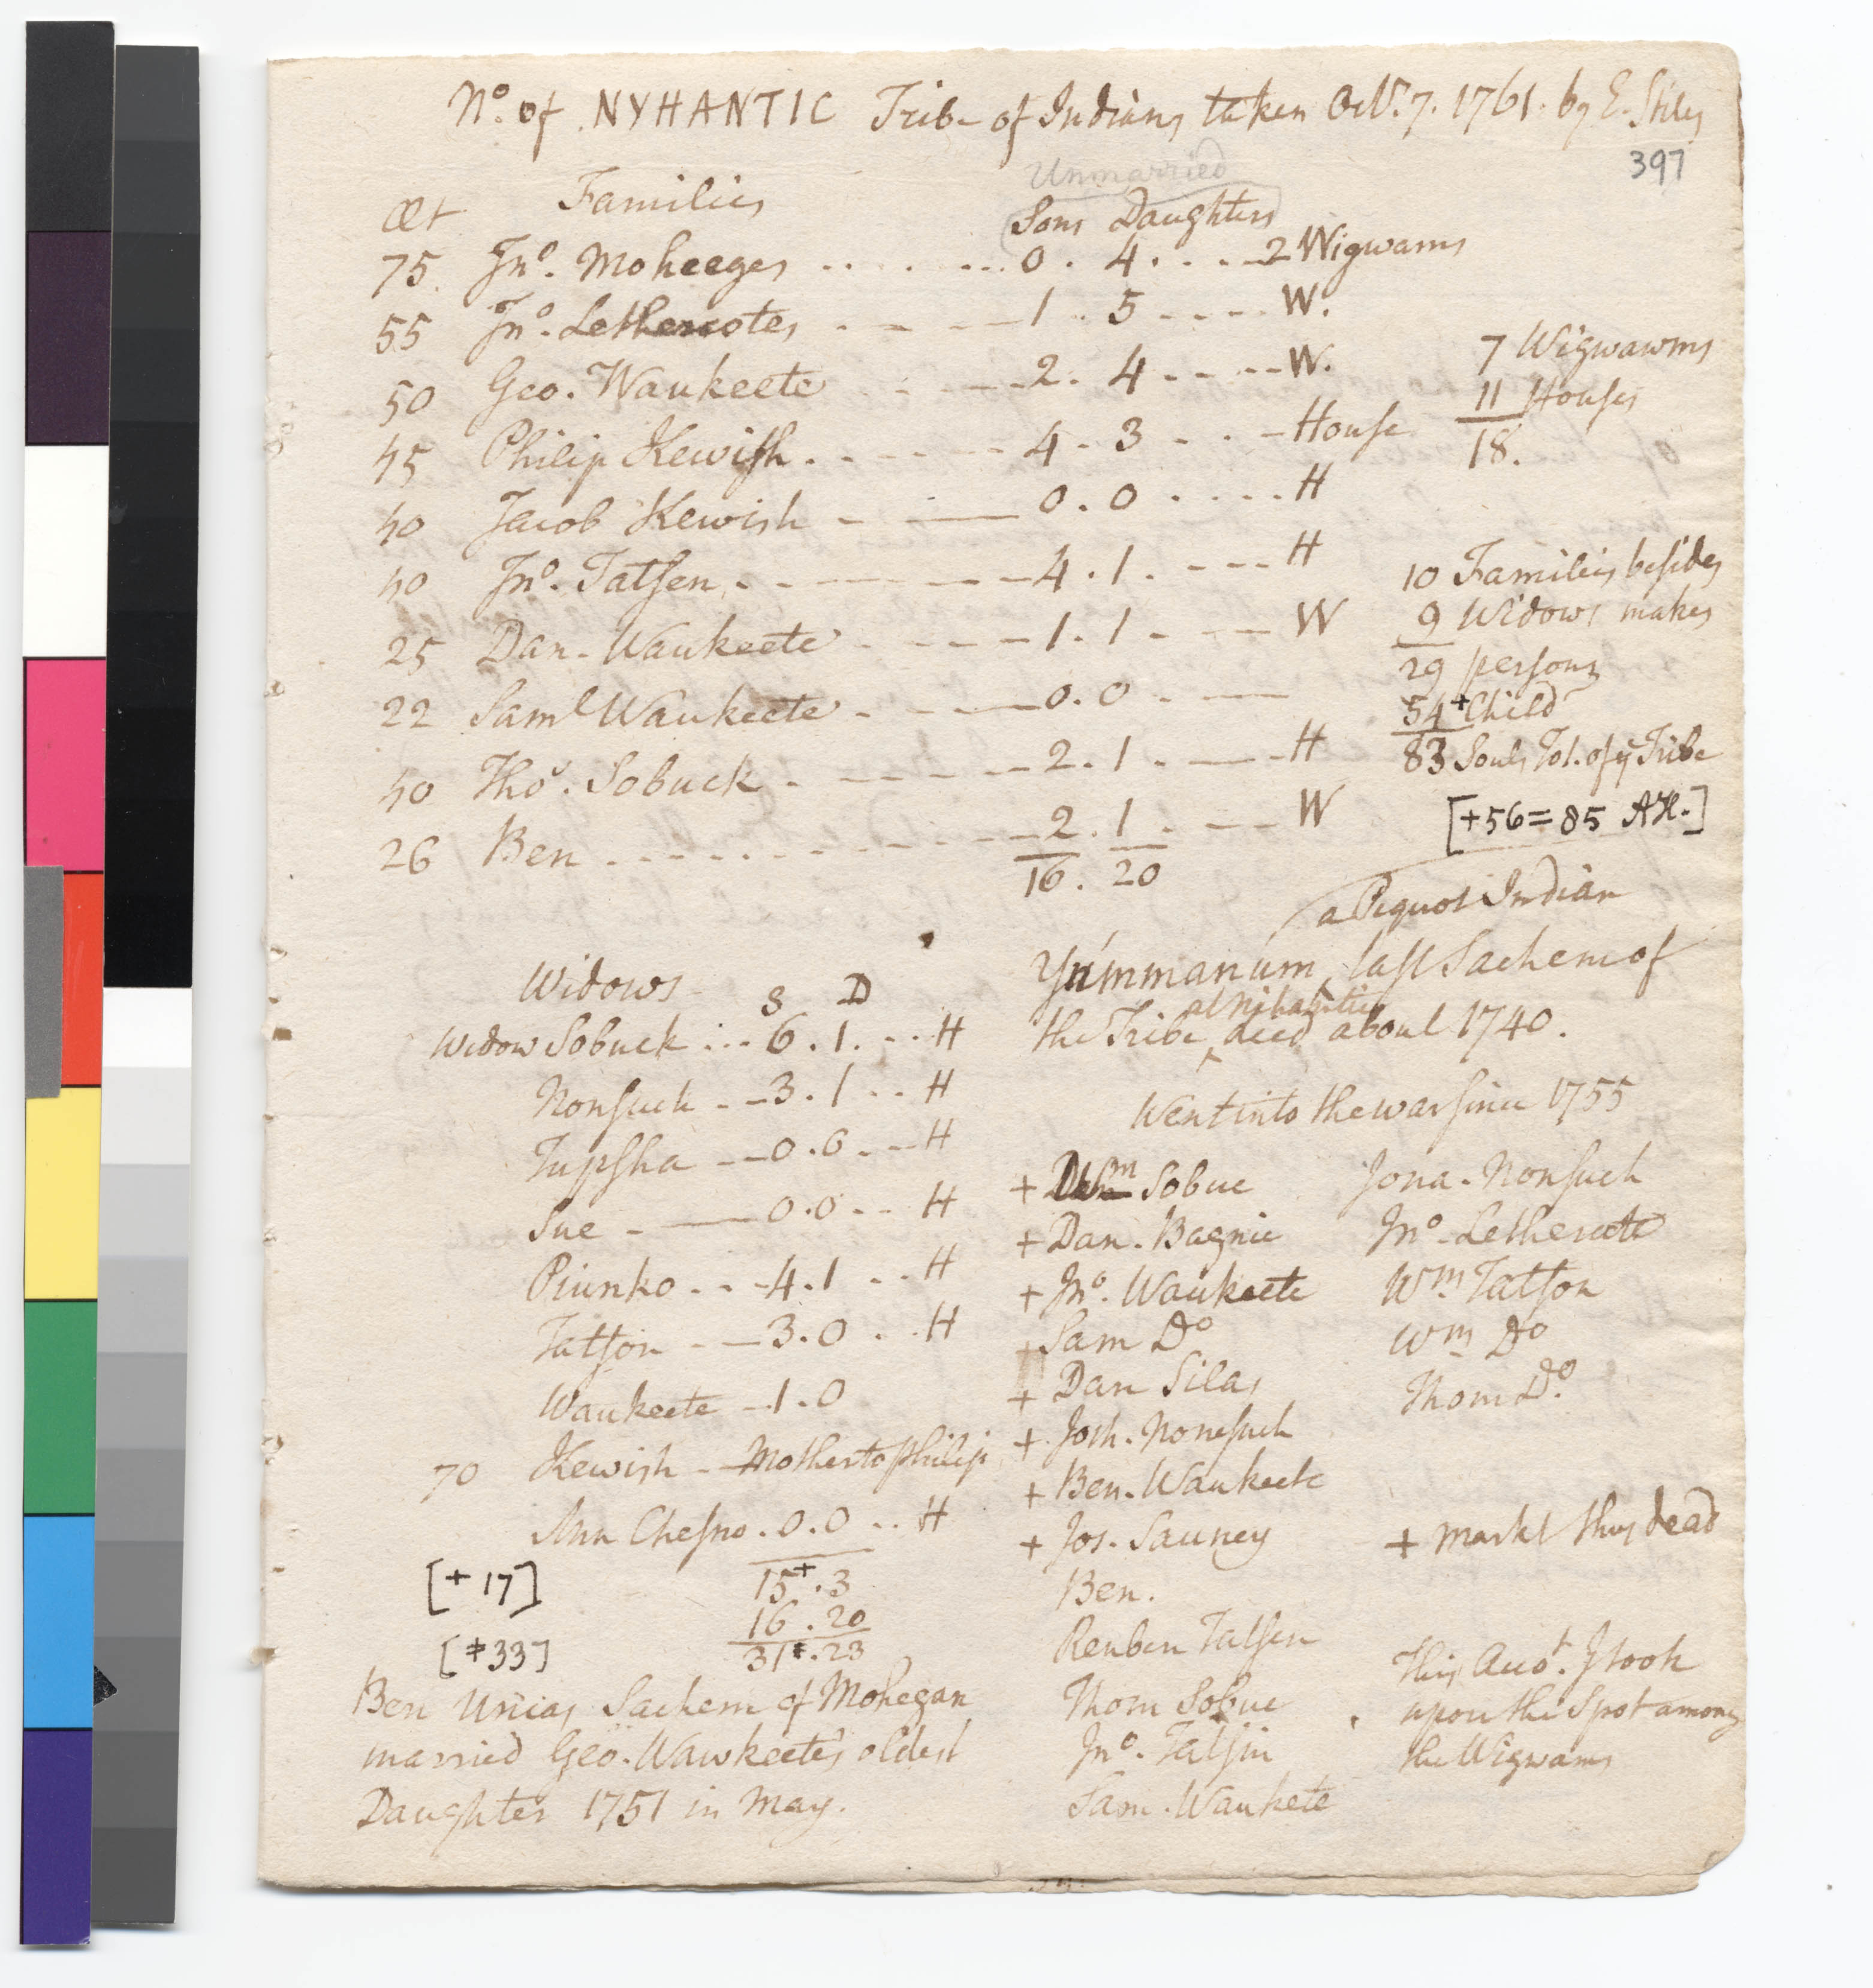 No. of NYHANTIC Tribe of Indians taken Octr. 7. 1761. by E. Stiles
397
Unmarried
Æt Families Sons Daughters
75. Jno. Moheeges 0. 4. 2 Wigwams
55 Jno. Lethercotes 1. 5 W.
50 Geo. Waukeete 2. 4 W.
45 Philip Kewish 4. 3 House
40 Jacob Kewish 0. 0 H
40 Jno. Tatsen 4. 1. H
25 Dan. Waukeete 1. 1 W
22 Saml Waukeete 0. 0
40 Thos. Sobuck 2. 1 H
26 Ben 2. 1. W
16. 20
7 Wigwawms
11 Houses
18.
10 Families besides
9 Widows makes
29 persons
54+ Childn
83 Souls Tot. of ye Tribe
[+56=85 AH.]
Widows S D
Widow Sobuck 6. 1. H
Nonsuch 3. 1 H
Tupsha 0. 0 H
Sue 0. 0 H
Piunko 4. 1 H
Tatson 3. 0 H
Waukeete 1. 0
70 Kewish Mother to Philip
Ann Chesno. 0. 0 H
[+ 17] 15+. 3
16. 20
[+33] 31+. 23
Ben Uncas Sachem of Mohegan
married Geo. Wawkeete's oldest
Daughter 1751 in May.
a Pequot Indian
Yúmmanum, last Sachem of
at Nihantic
the Tribe ‸ died about 1740.
Went into the war since 1755
+ Sobuc
+ Dan. Bagnie
+ Jno. Waukeete
+ Sam Do
+ Dan Silas
+ Josh. Nonesuch
+ Ben. Waukeete
+ Jos. Sauney
Ben.
Reuben Tatsen
Thom Sobuc
Jno. Tatsin
Sam. Waukete
Jona. Nonsuch
Jno. Lethercote
Wm Tatson
Wm Do
Thom Do.
+ markt thus dead
This Accot. I took
upon the Spot among
the Wigwams